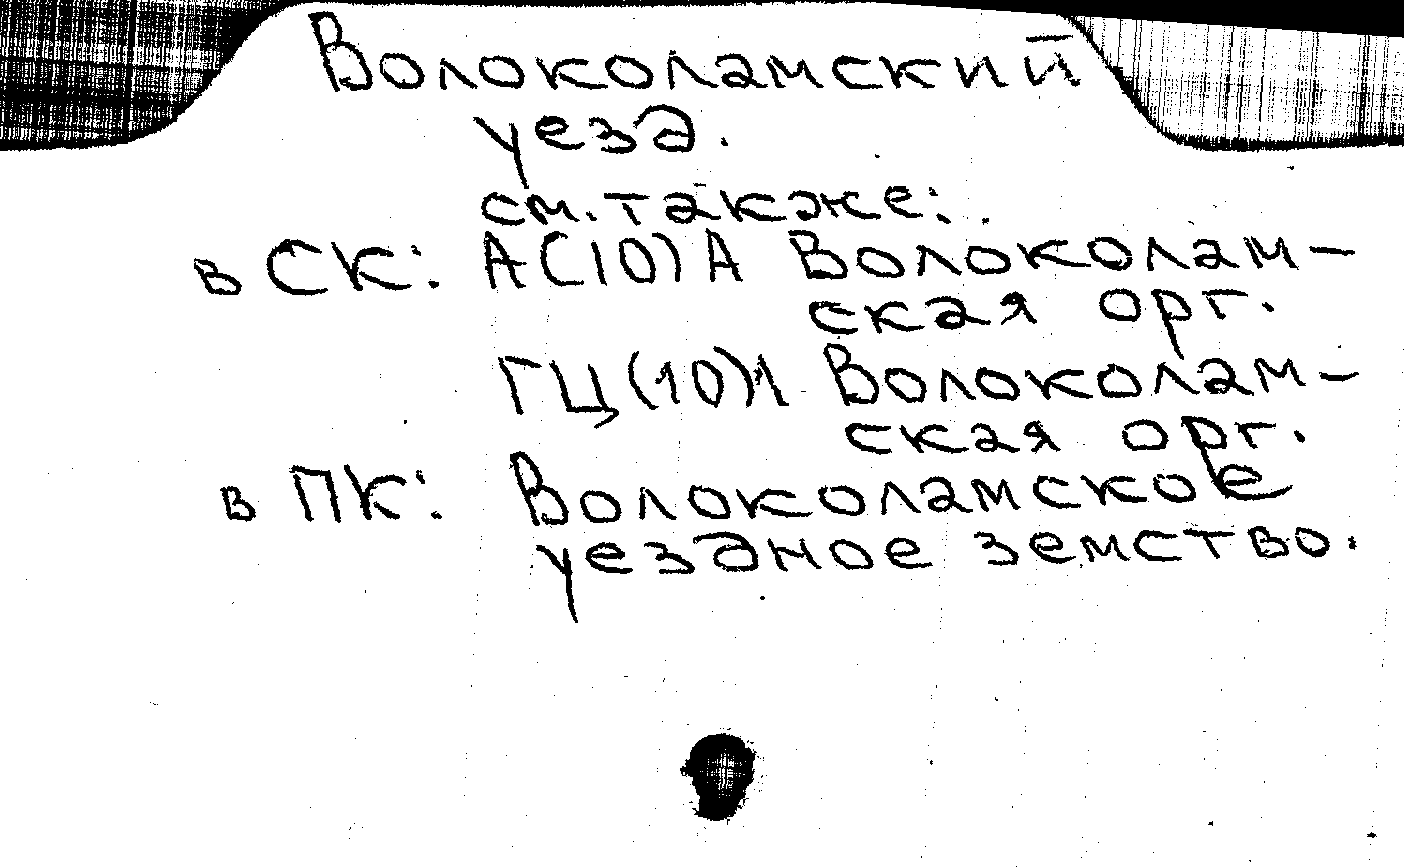 Волоколамский
уезд.
см. также:
в СК: А(10)А Волоколам-
ская орг.
ГЦ(10)1 Волоколам-
ская орг.
в ПК: Волоколамское
уездное земство.